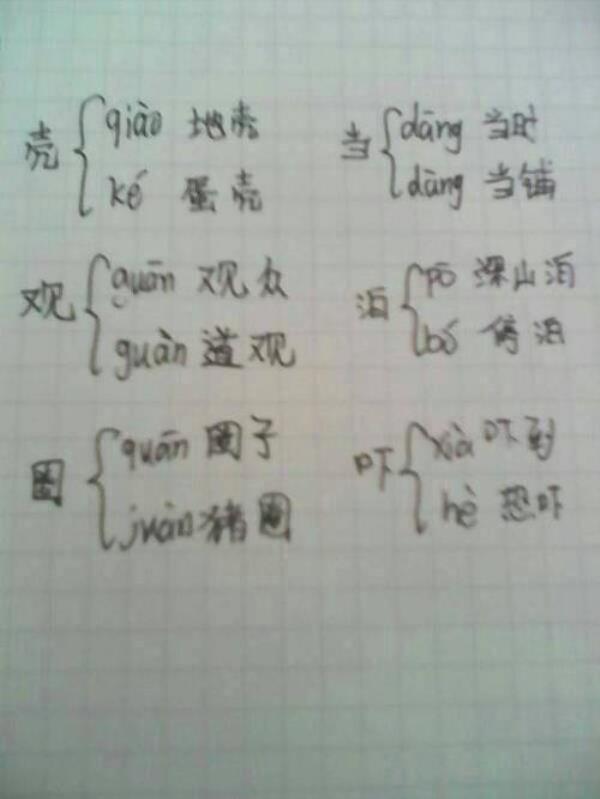 壳
qiào 地壳
ké 蛋壳
当
dāng 当时
dàng 当铺
观
guān 观众
guàn 道观
泊
pō 深山泊
bó 停泊
圈
quān 圈子
juàn 猪圈
吓
xià 吓到
hè 恐吓